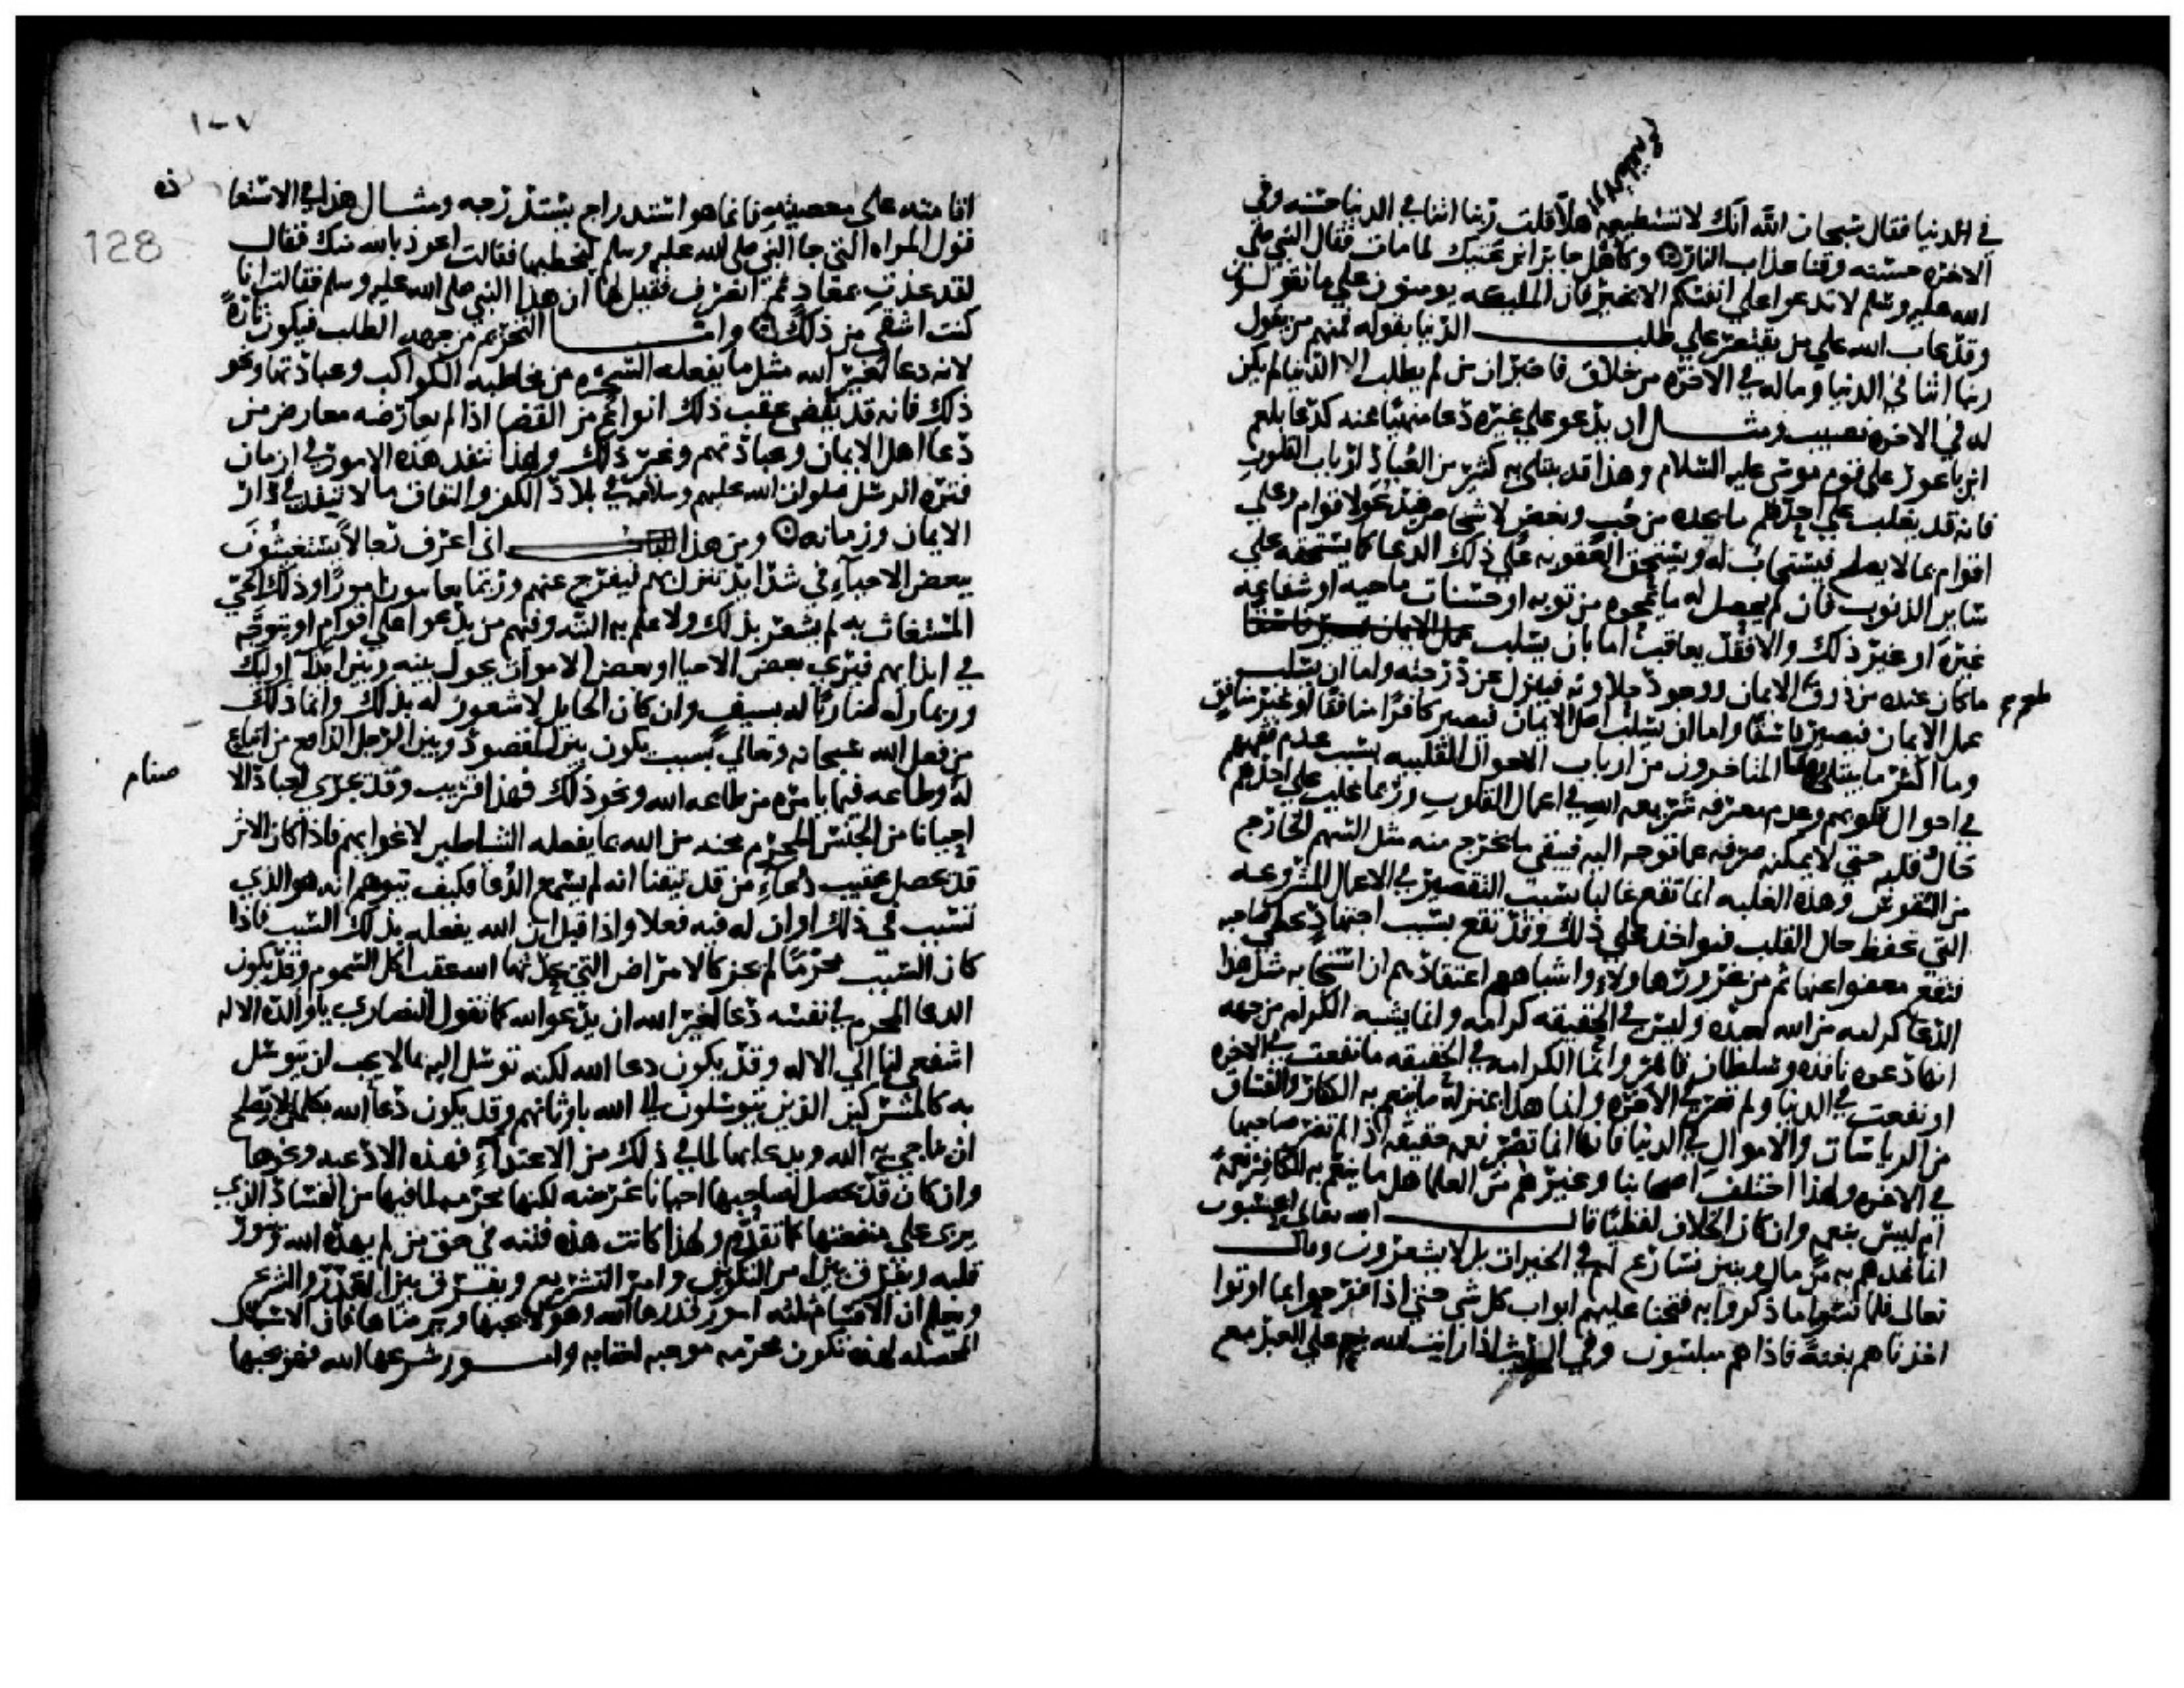 في الدنيا فقال سبحان الله انك لا تستطيعه هلا قلت ربنا اتنا في الدنيا حسنه وفي
الاخره حسنه وقنا عذاب النار وكاهل جابر ابن عتيك لما مات فقال النبي صلى
الله عليه وسلم لا تدعوا على انفسكم الا بخير فان المليكه يومنون على ما تقولون
وقد عاب الله على من يقتصر على طلب الدنيا بقوله فمنهم من يقول
ربنا اتنا في الدنيا وماله في الاخره من خلاق فاخبر ان من لم يطلب الا الدنيا لم يكن
له في الاخره نصيب ومثال ان يدعو على غيره دعا منهيا عنه كدعا بلعم
ابن باعور على قوم موسى عليه السلام وهذا قد يبتلى به كثير من العباد ارباب القلوب
فانه قد يغلب على احدهم ما يجده من حب وبغض لاشخاص فيدعو لاقوام وعلى
اقوام بما لا يصلح فيستجاب له ويستحق العقوبه على ذلك الدعا كما يستحقه على
ساير الذنوب فان لم يحصل له ما يمحوه من توبه او حسنات ماحيه او شفاعه
غيره او غير ذلك والا فقد يعاقب اما بان يسلب
ما كان عنده من ذوق طعم الايمان ووجود حلاوته فينزل عن درجته واما ان يسلب
عمل الايمان فيصير فاسقا واما ان يسلب اصل الايمان فيصير كافرا منافقا او غير منافق
وما اكثر ما يبتلى بهذا المتاخرون من ارباب الاحوال القلبيه بسبب عدم فقههم
في احوال قلوبهم وعدم معرفه شريعه الله في اعمال القلوب وربما غلب على احدهم
حال قلبه حتى لا يمكنه صرفه عما توجه اليه فيبقى ما يخرج منه مثل السهم الخارج
من القوس وهذه الغلبه انما تقع غالبا بسبب التقصير في الاعمال المشروعه
التي تحفظ حال القلب فيواخذ على ذلك وقد تقع بسبب اجتهاد يخطي صاحبه
فتقع معفوا عنها ثم من غرور هاولاء واشباههم اعتقادهم ان استجابه مثل هذا
الدعا كرامه من الله لعبده وليس في الحقيقه كرامه وانما يشبه الكرامه من جهه
انها دعوه نافذه وسلطان قاهر وانما الكرامه في الحقيقه ما نفعت في الاخره
او نفعت في الدنيا ولم تضر في الاخره وانما هذا بمنزله ما ينعم به الكفار والفساق
من الرياسات والاموال في الدنيا فانها انما تصير نعمه حقيقه اذا لم تضر صاحبها
في الاخره ولهذا اختلف اصحابنا وغيرهم من العلما هل ما ينعم به الكافر نعمه
ام ليس بنعمه وان كان الخلاف لفظيا قال الله تعالى ايحسبون
انما نمدهم به من مال وبنين نسارع لهم في الخيرات بل لا يشعرون وقال
تعالى فلما نسوا ما ذكروا به فتحنا عليهم ابواب كل شي حتى اذا فرحوا بما اوتوا
اخذناهم بغته فاذا هم مبلسون وفي الحديث اذا رايت الله ينعم على العبد مع
١٠٧
128
اقامته على معصيته فانما هو استدراج يستدرجه ومثال هذا في الاستعا
ذه
قول المراه التي جا النبي صلى الله عليه وسلم ليخطبها فقالت اعوذ بالله منك فقال
لقد عذت بمعاذ ثم انصرف فقيل لها ان هذا النبي صلى الله عليه وسلم فقالت انا
كنت اشقى من ذلك واما التحريم من جهه الطلب فيكون تاره
لانه دعا لغير الله مثل ما يفعله السحره من مخاطبه الكواكب وعبادتها ونحو
ذلك فانه قد يقضى عقب ذلك انواع من القضا اذا لم يعارضه معارض من
دعا اهل الايمان وعبادتهم وغير ذلك ولهذا تنفد هذه الامور في ازمان
فتره الرسل صلوات الله عليهم وسلامه في بلاد الكفر والنفاق ما لا تنفد في دار
الايمان وزمانه ومن هذا اني اعرف رجالا يستغيثون
ببعض الاحياء في شدايد تنزل بهم فيفرج عنهم وربما يعاينون امورا وذلك الحي
المستغاث به لم يشعر بذلك ولا علم به البته وفيهم من يدعوا على اقوام او يتوجه
في ايذايهم فيرى بعض الاحيا او بعض الاموات يحول بينه وبين ايذا اوليك
وربما راه ضاربا له بسيف وان كان الحايل لا شعور له بذلك وانما ذلك
من فعل الله سبحانه وتعالى بسبب يكون بين المقصود وبين الرجل الدافع من اتباع
له وطاعه فيما يامره من طاعه الله ونحو ذلك فهذا قريب وقد يجري لعباد الا
صنام
احيانا من الجنس المحرم محنه من الله بما يفعله الشياطين لاغوايهم فاذا كان الاثر
قد يحصل عقيب دعاء من قد تيقنا انه لم يسمع الدعا فكيف يتوهم انه هو الذي
تسبب في ذلك او ان له فيه فعلا واذا قيل ان الله يفعله بذلك السبب فاذا
كان السبب محرما لم يجز كالامراض التي يحدثها الله عقب اكل السموم وقد يكون
الدعا المحرم في نفسه دعا لغير الله ان يدعو الله كما تقول النصارى يا والده الاله
اشفعي لنا الى الاله وقد يكون دعا الله لكنه توسل اليه بما لا يحب ان يتوسل
به كالمشركين الذين يتوسلون الى الله باوثانهم وقد يكون دعا الله بكلمات لا تصلح
ان يناجى بها الله ويدعا بها لما في ذلك من الاعتداء فهذه الادعيه ونحوها
وان كان قد يحصل لصاحبها احيانا غرضه لكنها محرمه لما فيها من الفساد الذي
يربى على منفعتها كما تقدم ولهذا كانت هذه فتنه في حق من لم يهده الله وينور
قلبه ويفرق بين امر التكوين وامر التشريع ويفرق بين القدر والشرع
ويعلم ان الاقسام ثلثه امور قدرها الله وهو لا يحبها ولا يرضاها فان الاسباب
المحصله لهذه تكون محرمه موجبه لعقابه وامور شرعها الله فهو يحبها